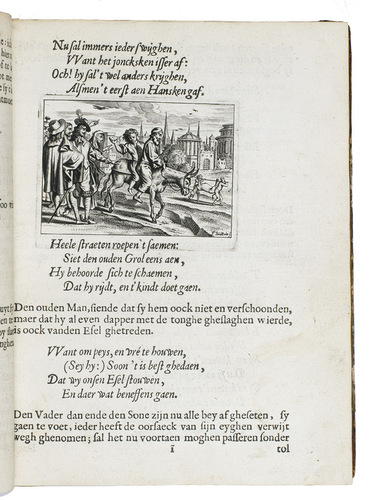 Nu sal immers ieder swijghen,
VVant het joncksken isser af:
Och! hy sal't wel anders krijghen,
Alsmen't eerst aen Hansken gaf.
Heele straeten roepen't saemen:
Siet den ouden Grol eens aen,
Hy behoorde sich te schaemen,
Dat hy rijdt, en t'kindt doet gaen.
Den ouden Man, siende dat sy hem oock niet en verschoonden,
maer dat hy al even dapper met de tonghe gheslaghen wierde,
is oock vanden Esel ghetreden.
VVant om peys, en vré te houwen,
(Sey hy:) Soon 't is best ghedaen,
Dat wy onsen Esel stouwen,
En daer wat beneffens gaen.
Den Vader dan ende den Sone zijn nu alle bey af gheseten, sy
gaen te voet, ieder heeft de oorsaeck van sijn eyghen verwijt
wegh ghenomen; sal het nu voortaen moghen passeren sonder
i tol